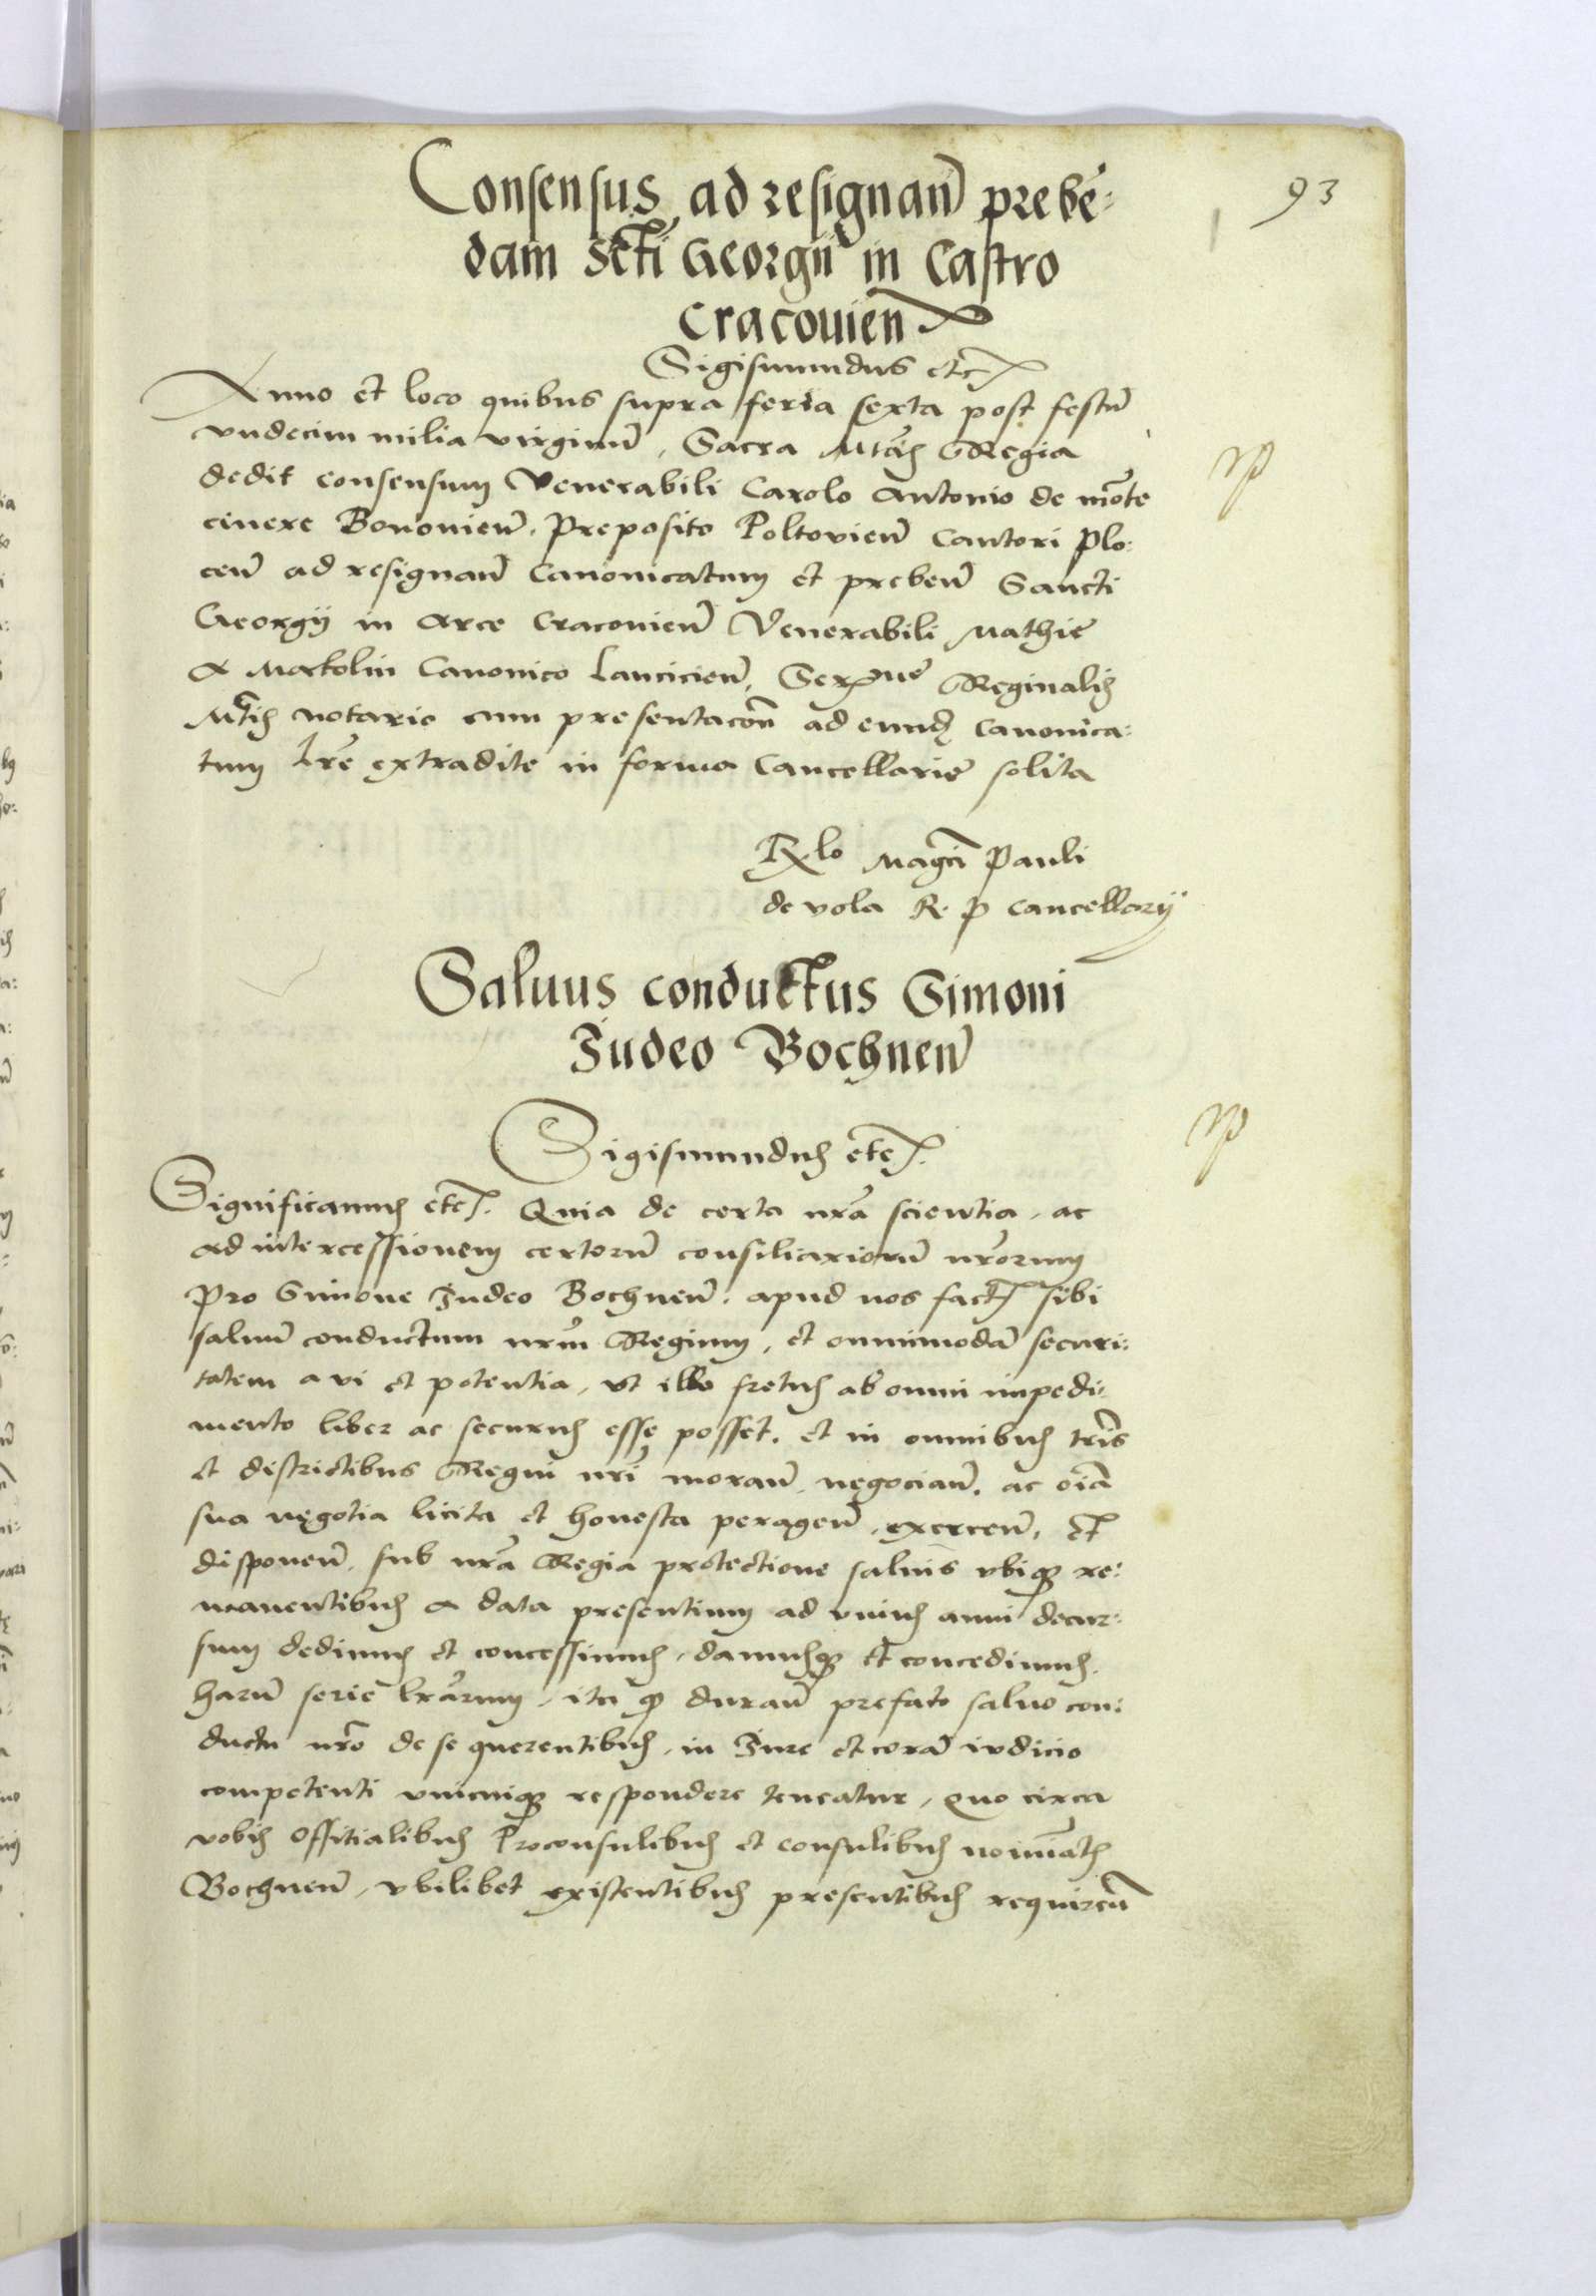 93
Consensus ad resignan̄ prebē:
dam Sctī Georgii in Castro
Cracouien̄
Sigismundus etc.
Anno et loco quibus supra feria sexta post festū
vndecim milia virginū, Sacra Mtās Regia
dedit consensum Venerabili Carolo Antonio de mōte
cinere Bononien̄. Preposito Poltovien̄ Cantori Plo:
cen̄ ad resignan̄ Canonicatum et preben̄ Sancti
Georgij in Arce Cracouien̄ Venerabili Mathie
a Makolin Canonico Lancicien̄, Ser^me Reginalis
Mtis notario cum presentacōn ad eund Canonica:
tum lr̄e extradite in forma Cancellarie solita
R^lo Mag^ci Pauli
de vola R. p Cancellarij
Saluus conductus Simoni
Judeo Bochnen̄
Sigismundus etc.
Significamus etc. Quia de certa nr̄a scientia, ac
ad intercessionem certorū consiliariorū nr̄orum
pro Simone Judeo Bochnen̄. apud nos fact. sibi
saluū conductum nr̄um Regium, et omnimodā securi:
tatem a vi et potentia, vt illo fretus ab omni impedi:
mento liber ac securus esse posset. et in omnibus tr̄is
et districtibus Regni nr̄i moran̄. negocian̄. ac oīa
sua negotia licita et honesta peragen̄, exercen̄, et
disponen̄. sub nr̄a Regia protectione saluis vbiq re:
manentibus a data presentium ad vnius anni decur:
sum dedimus et concessimus, damusq et concedimus.
harū serie lr̄arum, ita q duran̄ prefato saluo con:
ductu nr̄o de se querentibus, in Jure et corā iudicio
competenti vnicuiq respondere teneatur, quo circa
vobis Offitialibus Proconsulibus et consulibus nomīatis
Bochnen̄, vbilibet existentibus presentibus requiren̄